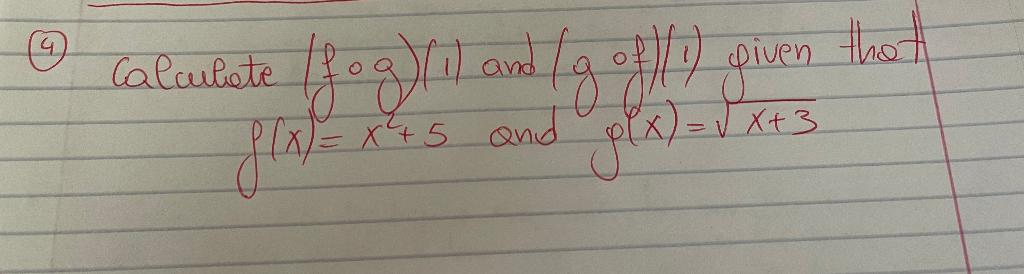 ④ Calculate (f o g)(1) and (g o f)(1) given that
f(x) = x²+5 and g(x) = √x+3